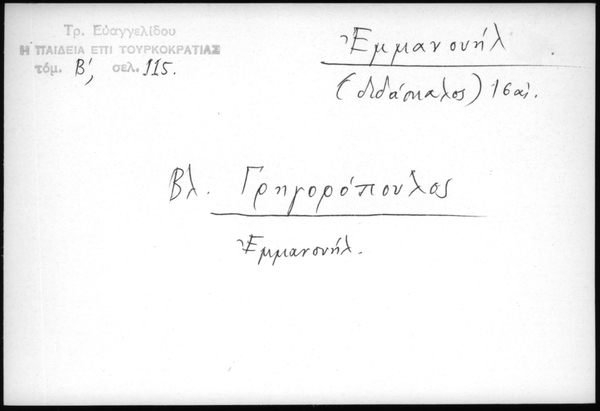 Τρ. Εὐαγγελίδου
Η ΠΑΙΔΕΙΑ ΕΠΙ ΤΟΥΡΚΟΚΡΑΤΙΑΣ
τόμ. Β', σελ. 115.
Ἐμμανουήλ
(διδάσκαλος) 16 αἰ.
Βλ. Γρηγορόπουλος
Ἐμμανουήλ.